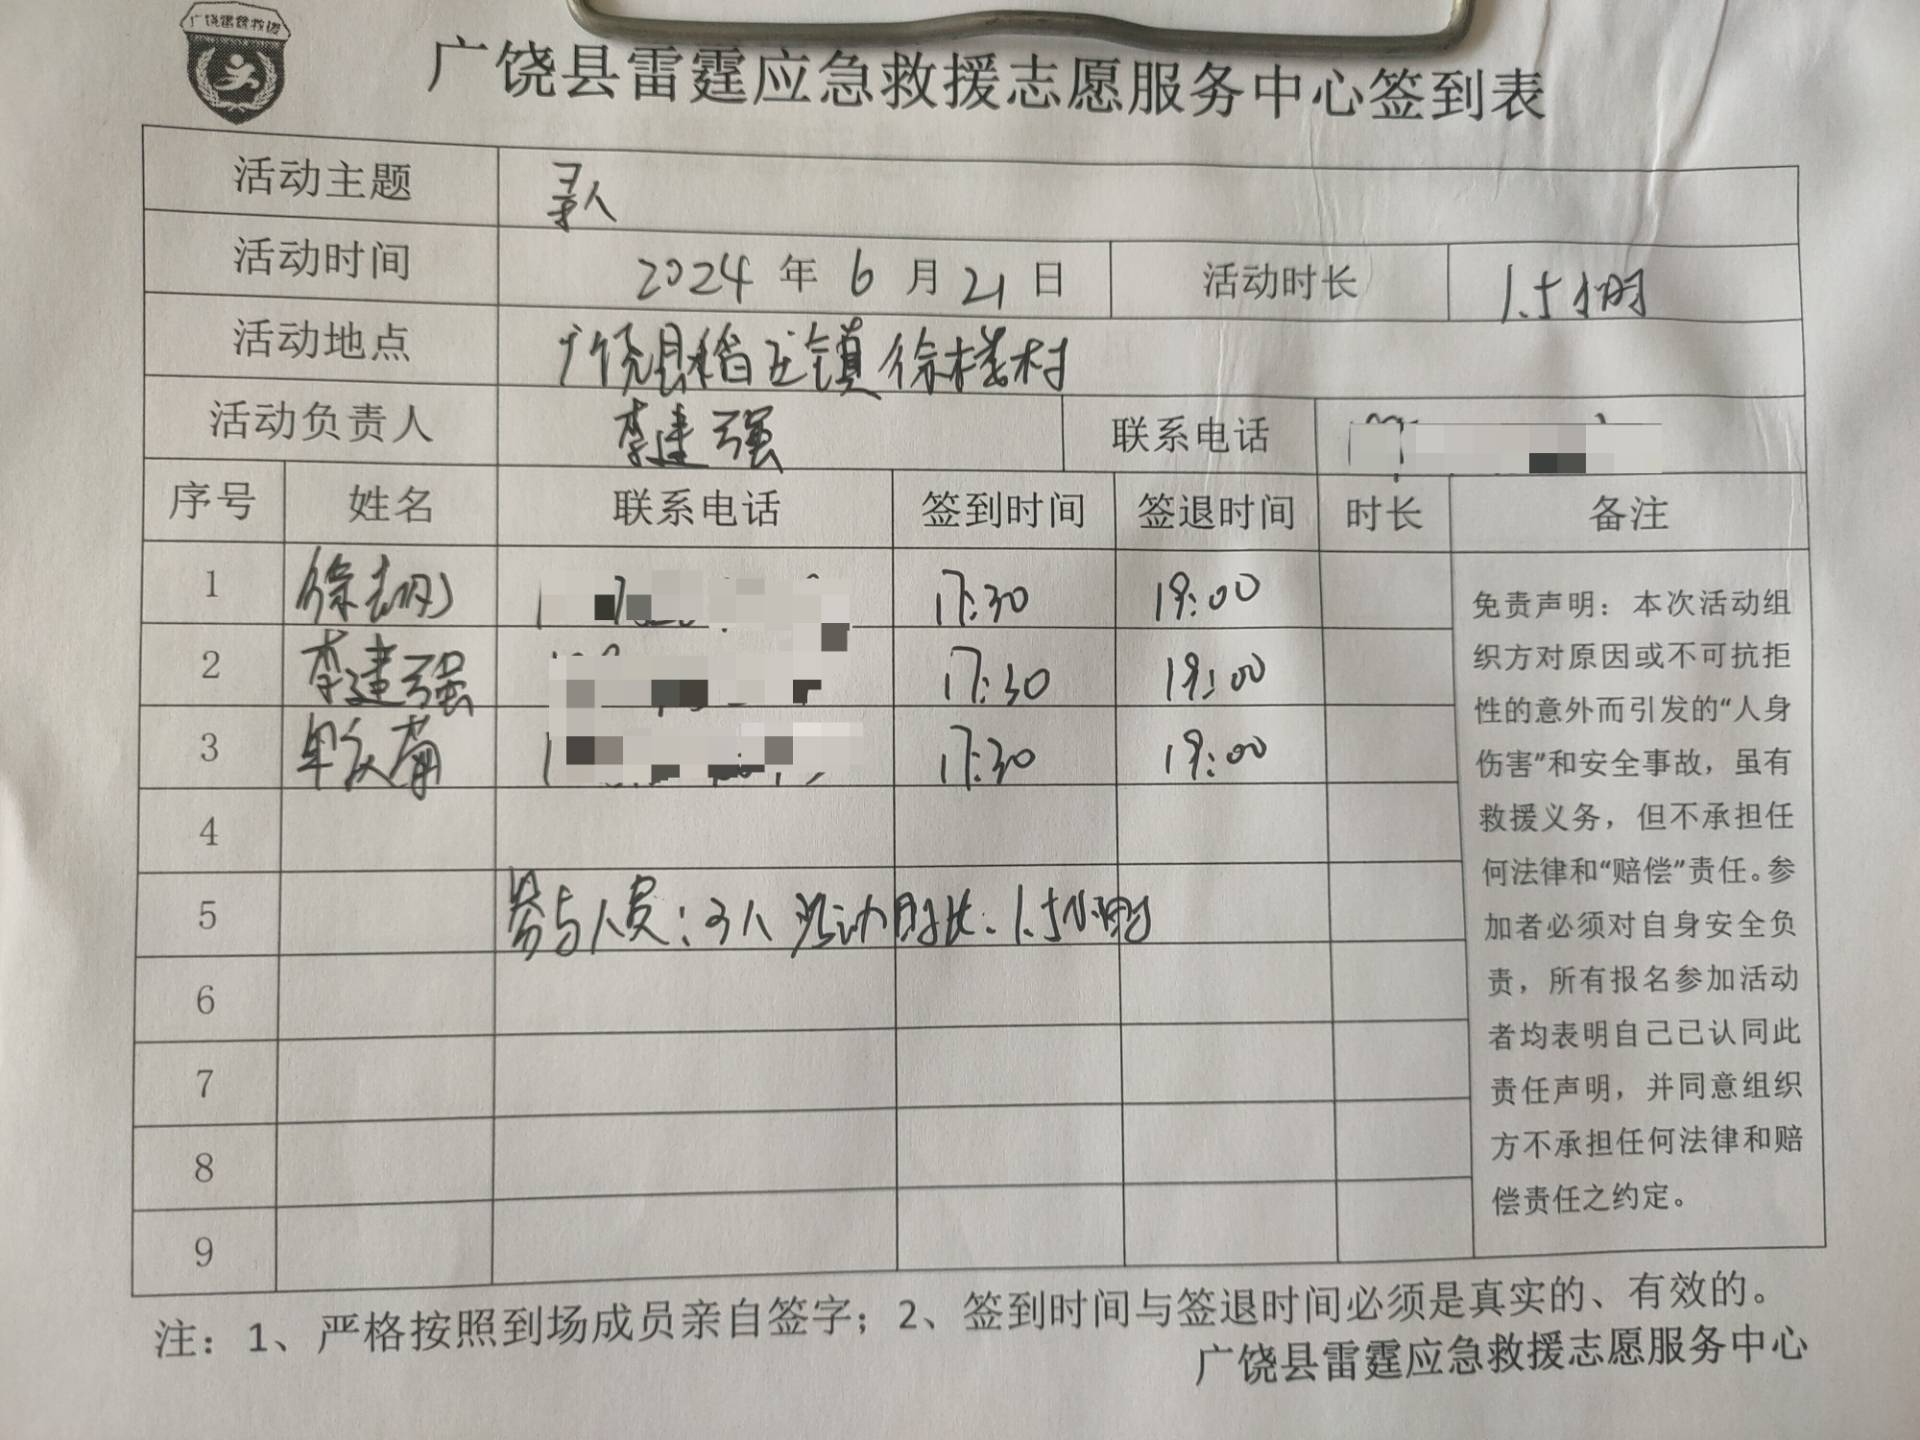 广饶雷霆救援
广饶县雷霆应急救援志愿服务中心签到表
活动主题 寻人
活动时间 2024 年 6 月 21 日 活动时长 1.5小时
活动地点 广饶县稻庄镇徐楼村
活动负责人 李建强 联系电话
序号 姓名 联系电话 签到时间 签退时间 时长 备注
1 徐志刚 17:30 19:00
2 李建强 17:30 19:00
3 17:30 19:00
4
5 参与人员:3人 活动时长:1.5小时
6
7
8
9
免责声明：本次活动组
织方对原因或不可抗拒
性的意外而引发的“人身
伤害”和安全事故，虽有
救援义务，但不承担任
何法律和“赔偿”责任。参
加者必须对自身安全负
责，所有报名参加活动
者均表明自己已认同此
责任声明，并同意组织
方不承担任何法律和赔
偿责任之约定。
注：1、严格按照到场成员亲自签字；2、签到时间与签退时间必须是真实的、有效的。
广饶县雷霆应急救援志愿服务中心